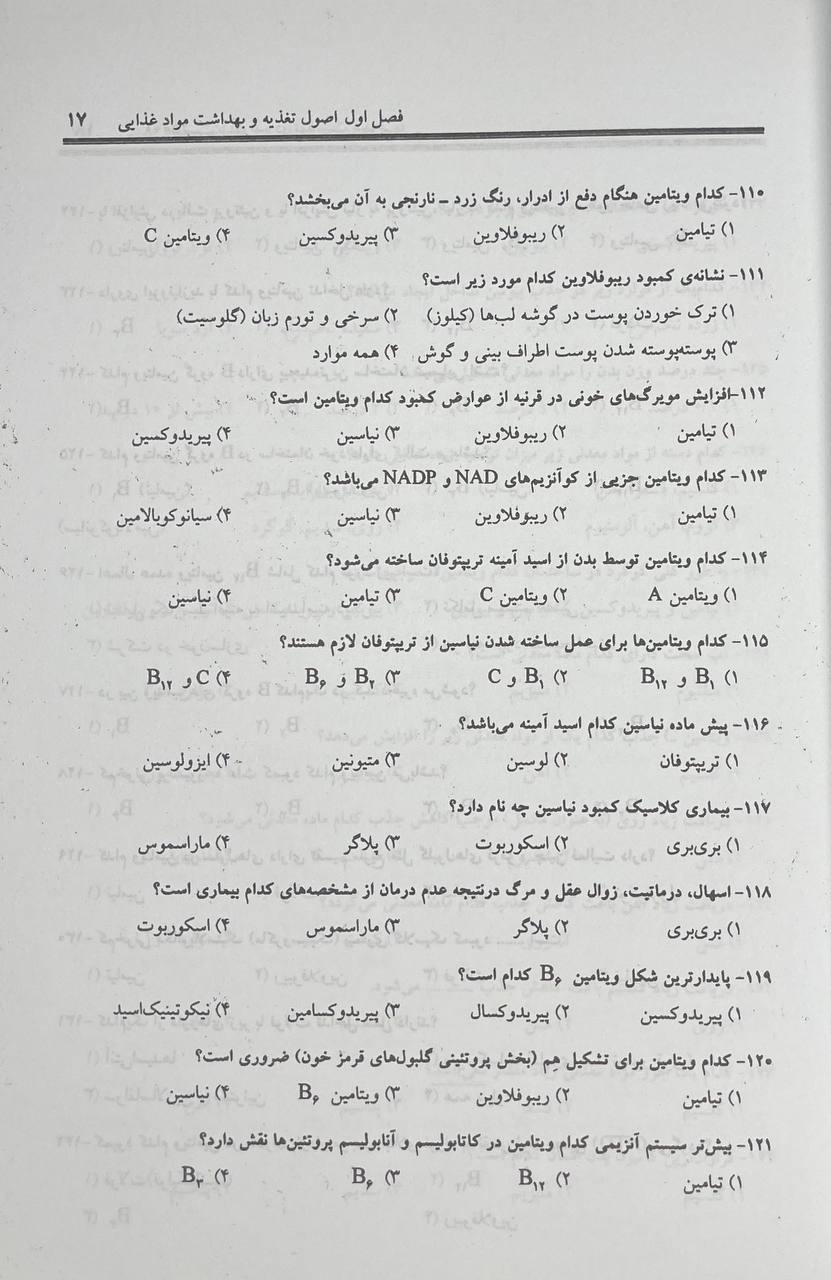 فصل اول اصول تغذیه و بهداشت مواد غذایی ۱۷
۱۱۰- کدام ویتامین هنگام دفع از ادرار، رنگ زرد - نارنجی به آن می‌بخشد؟
۱) تیامین ۲) ریبوفلاوین ۳) پیریدوکسین ۴) ویتامین C
۱۱۱- نشانه‌ی کمبود ریبوفلاوین کدام مورد زیر است؟
۱) ترک خوردن پوست در گوشه لب‌ها (کیلوز) ۲) سرخی و تورم زبان (گلوسیت)
۳) پوسته‌پوسته شدن پوست اطراف بینی و گوش ۴) همه موارد
۱۱۲-افزایش مویرگ‌های خونی در قرنیه از عوارض کمبود کدام ویتامین است؟
۱) تیامین ۲) ریبوفلاوین ۳) نیاسین ۴) پیریدوکسین
۱۱۳- کدام ویتامین جزیی از کوآنزیم‌های NAD و NADP می‌باشد؟
۱) تیامین ۲) ریبوفلاوین ۳) نیاسین ۴) سیانوکوبالامین
۱۱۴- کدام ویتامین توسط بدن از اسید آمینه تریپتوفان ساخته می‌شود؟
۱) ویتامین A ۲) ویتامین C ۳) تیامین ۴) نیاسین
۱۱۵- کدام ویتامین‌ها برای عمل ساخته شدن نیاسین از تریپتوفان لازم هستند؟
۱) B۱ و B۱۲ ۲) B۱ و C ۳) B۲ و B۶ ۴) C و B۱۲
۱۱۶- پیش ماده نیاسین کدام اسید آمینه می‌باشد؟
۱) تریپتوفان ۲) لوسین ۳) متیونین ۴) ایزولوسین
۱۱۷- بیماری کلاسیک کمبود نیاسین چه نام دارد؟
۱) بری‌بری ۲) اسکوربوت ۳) پلاگر ۴) ماراسموس
۱۱۸- اسهال، درماتیت، زوال عقل و مرگ درنتیجه عدم درمان از مشخصه‌های کدام بیماری است؟
۱) بری‌بری ۲) پلاگر ۳) ماراسموس ۴) اسکوربوت
۱۱۹- پایدارترین شکل ویتامین B۶ کدام است؟
۱) پیریدوکسین ۲) پیریدوکسال ۳) پیریدوکسامین ۴) نیکوتینیک‌اسید
۱۲۰- کدام ویتامین برای تشکیل هِم (بخش پروتئینی گلبول‌های قرمز خون) ضروری است؟
۱) تیامین ۲) ریبوفلاوین ۳) ویتامین B۶ ۴) نیاسین
۱۲۱- بیش‌تر سیستم آنزیمی کدام ویتامین در کاتابولیسم و آنابولیسم پروتئین‌ها نقش دارد؟
۱) تیامین ۲) B۱۲ ۳) B۶ ۴) B۳